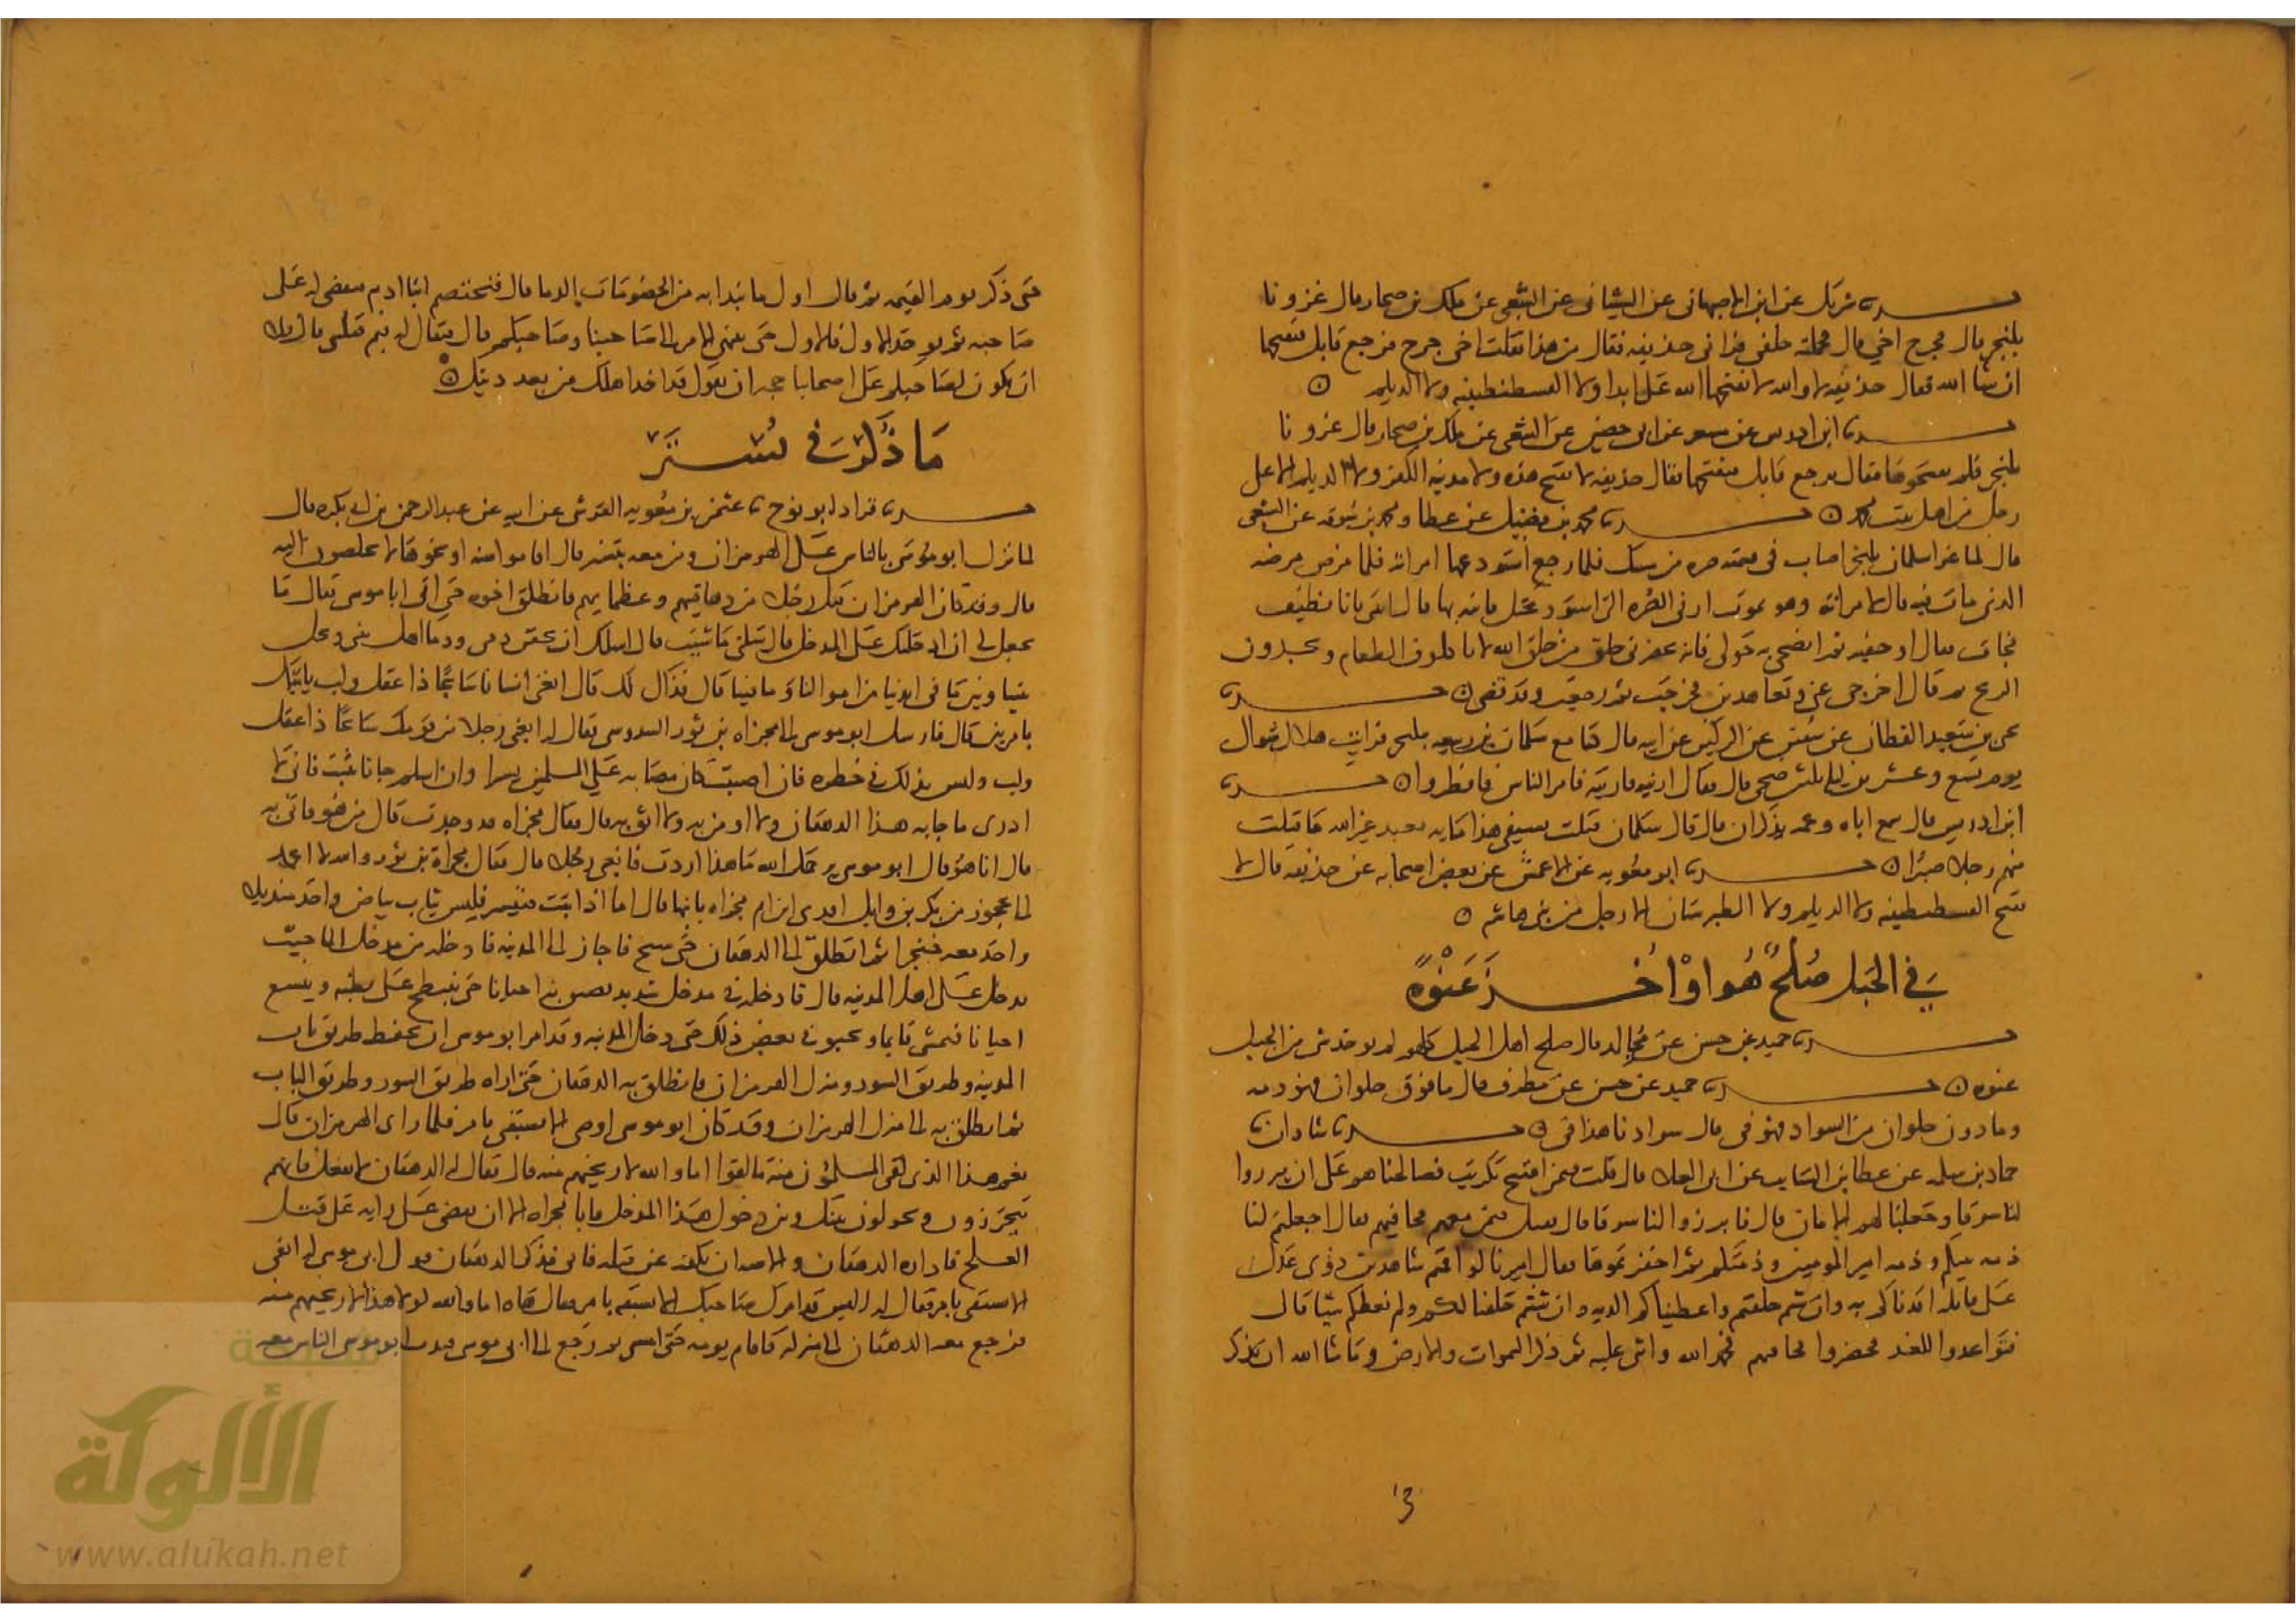 حدثنا شريك عن ابن الاصبهاني عن الشيباني عن الشعبي عن ملك بن صحار قال غزونا
بلنجر قال فجرح اخي قال فحملته خلفي فراني حذيفه فقال من هذا فقلت اخي جرح نرجع قابل نفتحها
ان شا الله فقال حذيفه لا والله لا يفتحها الله علي ابدا ولا القسطنطينيه ولا الديلم ○
حدثنا ابن ادريس عن مسعر عن ابي حصين عن الشعبي عن ملك بن صحار قال غزونا
بلنجر فلم يفتحوها فقال نرجع قابل فنفتحها فقال حذيفه لا تفتح هذه ولا مدينه الكفر ولا الديلم الا على
رجل من اهل بيت محمد ○ حدثنا محمد بن فضيل عن عطا ومحمد بن سوقه عن الشعبي
قال لما غزا سلمان بلنجر اصاب في قسمته صره من مسك فلما رجع استودعها امراته فلما مرض مرضه
الذي مات فيه قال لامراته وهو يموت اريني الصره التي استودعتك فاتته بها فقال ائتني بانا نظيف
فجات فقال اوجفيه ثم انضحي به حولي فانه يحضرني خلق من خلق الله لا ياكلون الطعام ويجدون
الريح ثم قال اخرجي عني وتعاهديني فخرجت ثم رجعت وقد قضى ○ حدثنا
يحيى بن سعيد القطان عن سفين عن الركين عن ابيه قال كنا مع سلمان بن ربيعه ببلنجر فرايت هلال شوال
يوم تسع وعشرين ليله ثلثين ضحى قال فقال ارنيه فاريته فامر الناس فافطروا ○ حدثنا
ابن ادريس قال سمع اباه وعمه يذكران قال قال سلمان قتلت بسيفي هذا مايه يعبد غير الله ما قتلت
منهم رجلا صبرا ○ حدثنا ابو معويه عن الاعمش عن بعض اصحابه عن حذيفه قال لا
تفتح القسطنطينيه ولا الديلم ولا الطبرستان الا رجل من بني هاشم ○
في الجبل صلح هو او اخذ عنوة
حدثنا حميد عن حسن عن مجالد قال صلح اهل الجبل كلهم لم يوخذ شي من الجبل
عنوه ○ حدثنا حميد عن حسن عن مطرف قال ما فوق حلوان فهو ذمه
وما دون حلوان من السواد فهو في قال سوادنا هذا في ○ حدثنا شاذان نا
حماد بن سلمه عن عطا بن السايب عن ابي العلا قال كنت فيمن افتتح تكريت فصالحناهم على ان يبرزوا
لنا سوقا وجعلنا لهم الامان قال فابرزوا لنا سوقا قال فقتل قين منهم فجا قسهم فقال اجعلتم لنا
ذمه نبيكم وذمه امير المومنين وذمتكم ثم اخفرتموها فقال اميرنا ان اقمتم شاهدين ذوي عدل
على قاتله اقدناكم به وان شيتم حلفتم واعطيناكم الديه وان شيتم حلفنا لكم ولم نعطكم شيا قال
فتواعدوا للغد فحضروا فجا قسهم فحمد الله واثنى عليه ثم ذكر السموات والارض وما شا الله ان يذكر
حتى ذكر يوم القيمه ثم قال اول ما يبدا به من الخصومات الدما قال فيختصم ابنا ادم فيقضى له على
صاحبه ثم يوخذ الاول فالاول حتى ينتهي الامر الى صاحبنا وصاحبكم قال فيقال له فيم قتلتني قال فلا
ان يكون لصاحبكم على صاحبنا حجه ان يقول قد اخذ اهلك من بعدك ديتك ○
ما ذكر في تستر
حدثنا قراد ابو نوح نا عثمن بن معويه القرشي عن ابيه عن عبد الرحمن بن ابي بكره قال
لما نزل ابو موسى بالناس على الهرمزان ومن معه بتستر قال اقاموا سنه او نحوها لا يخلصون اليه
قال وقد كان الهرمزان قتل رجلا من دهاقينهم وعظمايهم فانطلق اخوه حتى اتى ابا موسى فقال ما
تجعل لي ان دخلتك على المدخل قال سلني ما شيت قال اسلك ان تحقن دمي ودما اهل بيتي وتخلي
بيننا وبين ما في ايدينا من اموالنا ومساكننا قال فذاك لك قال ابغني انسانا سابحا ذا عقل ولب ياتيك
بامر بين قال فارسل ابو موسى الى مجزاه بن ثور السدوسي فقال له ابغني رجلا من قومك سابحا ذا عقل
ولب وليس بذلك في خطره فان اصيب كان مصابه على المسلمين يسيرا وان سلم جانا بثبت فاني لا
ادري ما جا به هذا الدهقان ولا امن به ولا اثق به قال فقال مجزاه قد وجدت قال من هو فات به
قال انا هو قال ابو موسى يرحمك الله ما هذا اردت فابغني رجلا قال فقال مجزاة بن ثور والله لا اعمد
الى عجوز من بكر بن وايل افدي ابن ام مجزاه بابنها قال اما اذ ابيت فتيسر فلبس ثياب بياض واخذ منديلا
واخذ معه خنجرا ثم انطلق الى الدهقان حتى سبح فاجاز الى المدينه فادخله من مدخل الما حيث
يدخل على اهل المدينه قال فادخله في مدخل شديد يضيق به احيانا حتى ينبطح على بطنه ويتسع
احيانا فيمشي قايما ويحبو في بعض ذلك حتى دخل المدينه وقد امر ابو موسى ان يحفظ طريق باب
المدينه وطريق السور ومنزل الهرمزان فانطلق به الدهقان حتى اراه طريق السور وطريق الباب
ثم انطلق به الى منزل الهرمزان وقد كان ابو موسى اوصاه الا تسبقني بامر فلما راى الهرمزان قال
نعم هذا الذي لقي المسلمون منه ما لقوا اما والله لاريحنهم منه قال فقال له الدهقان لا تفعل فانهم
يتحرزون ويحولون بينك وبين دخول هذا المدخل فابى مجزاه الا ان يمضي على رايه على قتل
العلج فاداره الدهقان والاصه ان يكف عن قتله فابى فذكر الدهقان قول ابي موسى له اتقي
الا تسبقني بامر فقال له اليس قد امرك صاحبك الا تسبقه بامر فقال هاه اما والله لولا هذا لاريحنهم منه
فرجع معه الدهقان الى منزله فاقام يومه حتى امسى ثم رجع الى ابي موسى فندب ابو موسى الناس معه
شبكة
الألوكة
www.alukah.net